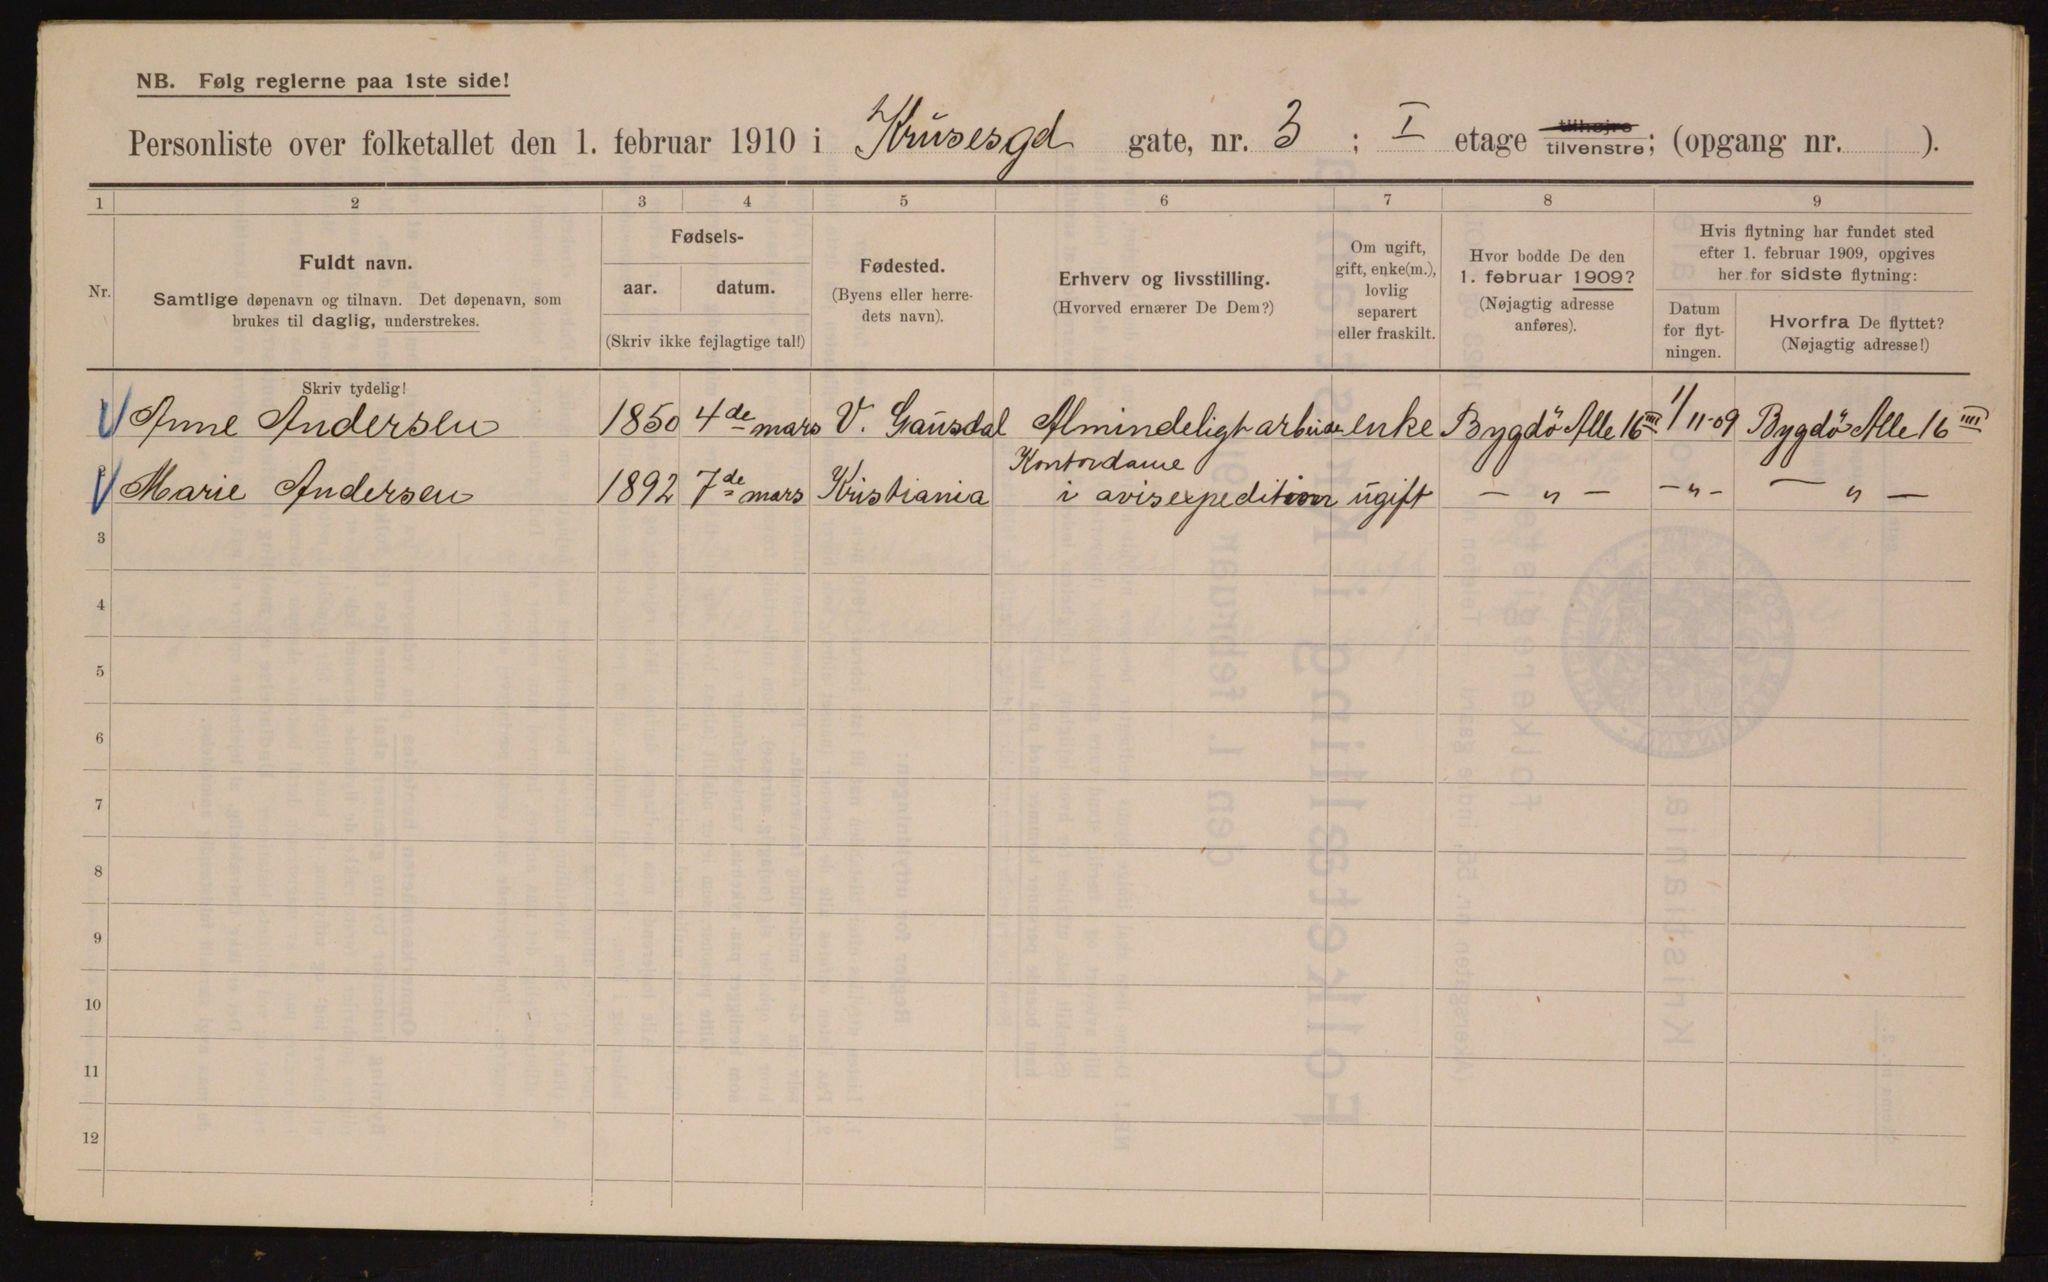 NB. Følg reglerne paa 1ste side!
Personliste over folketallet den 1. februar 1910 i Krusesgd gate, nr. 3 ; I etage tilhøjre tilvenstre; (opgang nr. ).
1 2 3 4 5 6 7 8 9
Nr.
Fuldt navn.
Samtlige døpenavn og tilnavn. Det døpenavn, som
brukes til daglig, understrekes.
Fødsels-
aar. datum.
(Skriv ikke fejlagtige tal!)
Fødested.
(Byens eller herre-
dets navn).
Erhverv og livsstilling.
(Hvorved ernærer De Dem?)
Om ugift,
gift, enke(m.),
lovlig
separert
eller fraskilt.
Hvor bodde De den
1. februar 1909?
(Nøjagtig adresse
anføres).
Hvis flytning har fundet sted
efter 1. februar 1909, opgives
her for sidste flytning:
Datum
for flyt-
ningen.
Hvorfra De flyttet?
(Nøjagtig adresse!)
Skriv tydelig!
Anne Andersen 1850 4de mars V. Gausdal Almindeligt arbeide enke Bygdö Alle 16 III 1/11-09 Bygdö Alle 16 IIII
Kontordame
Marie Andersen 1892 7de mars Kristiania i avisexpedition ugift — " — — " — — " —
3
4
5
6
7
8
9
10
11
12